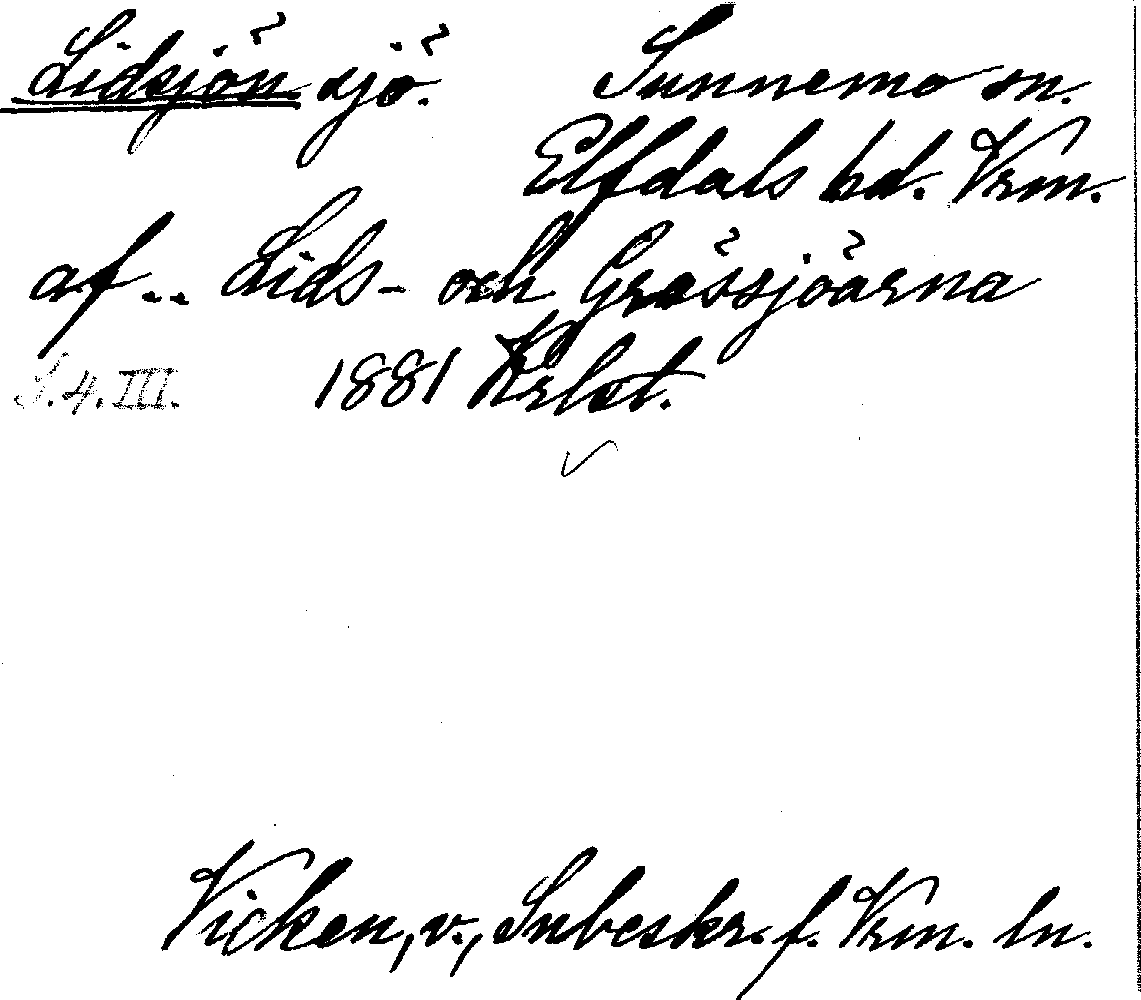 Lidsjön sjö. Sunnemo sn.
Elfdals hd. Vrm.
af.. Lids- och Grässjöarna
S.4.III. 1881 Krlst.
Vicken, v., Snbeskr. f. Vrm. ln.